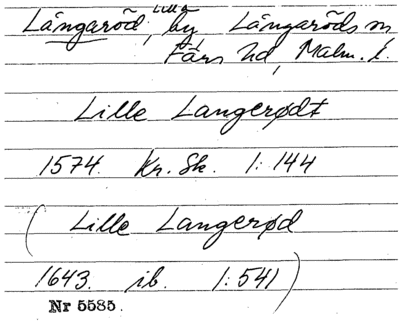 Långaröd, Lilla, by Långaröds sn
Färs hd, Malm. l.
Lille Langerødt
1574. Kr. Sk. 1:144
(Lille Langerød
1643. ib. 1:541)
Nr 5585.